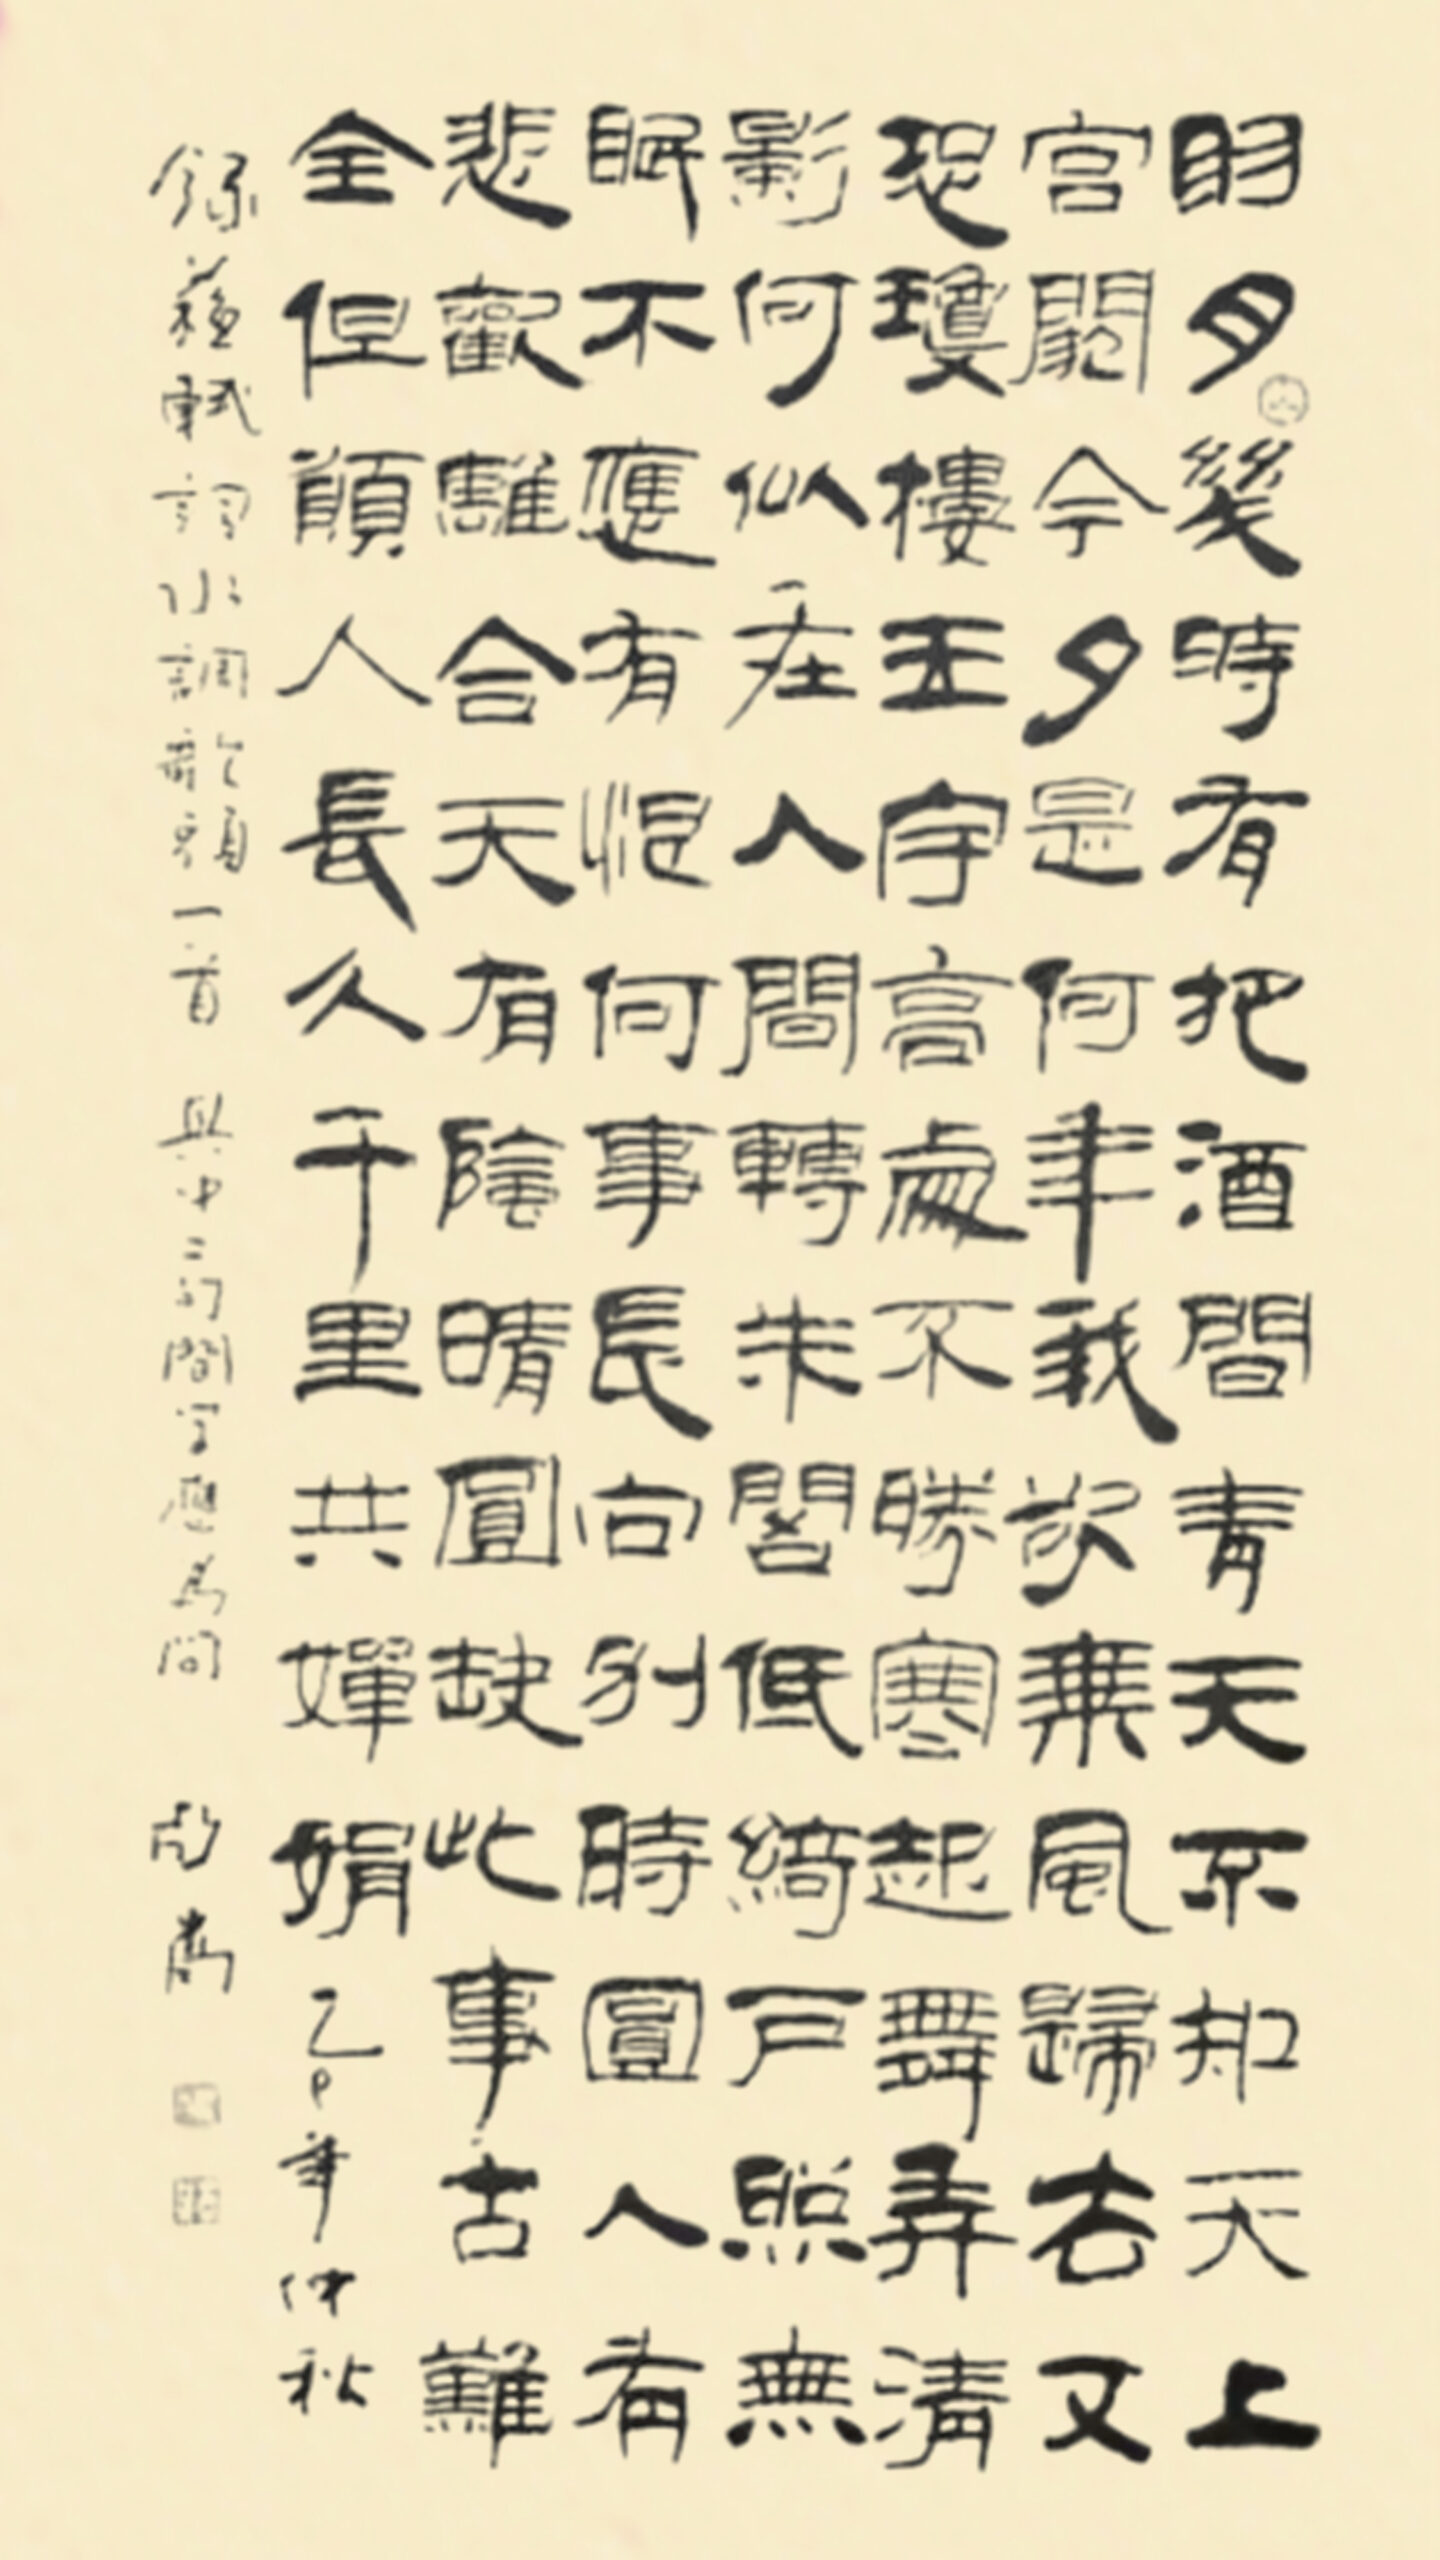 明月幾時有把酒問青天不知天上
宮闕今夕是何年我欲乘風歸去又
恐瓊樓玉宇高處不勝寒起舞弄清
影何似在人間轉朱閣低綺戶照無
眠不應有恨何事長向別時圓人有
悲歡離合天有陰晴圓缺此事古難
全但願人長久千里共嬋娟乙巳年仲秋
錄蘇軾詞水調歌頭一首 其中二句間字應為問